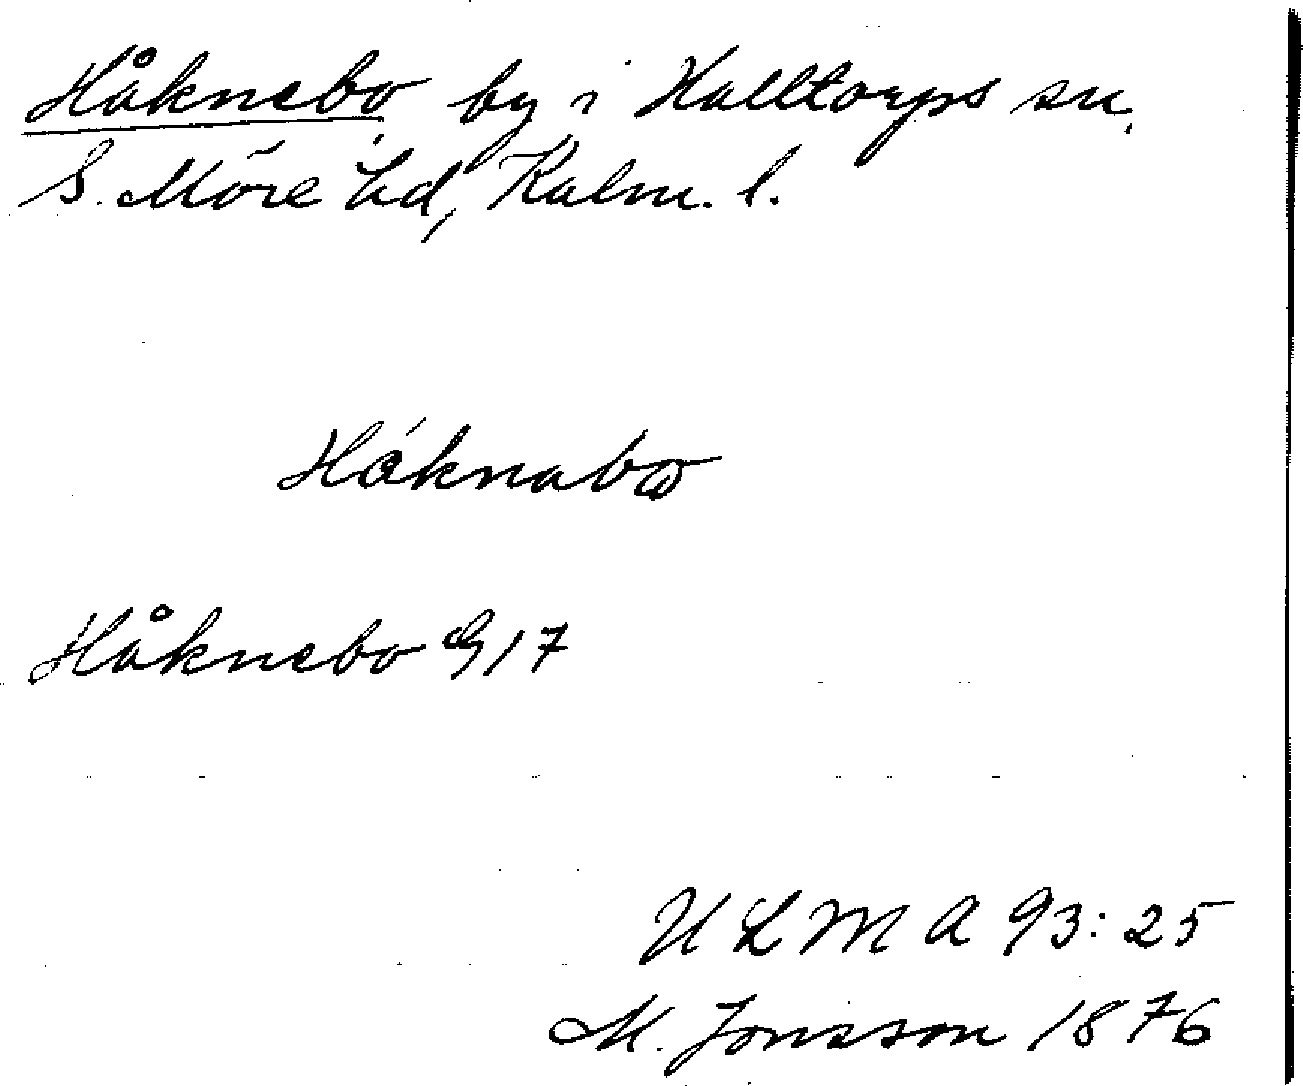 Håknebo by i Halltorps sn.
S. Möre hd, Kalm. l.
Håknabω
Håknebo G17
ULMA 93:25
M. Jonsson 1876